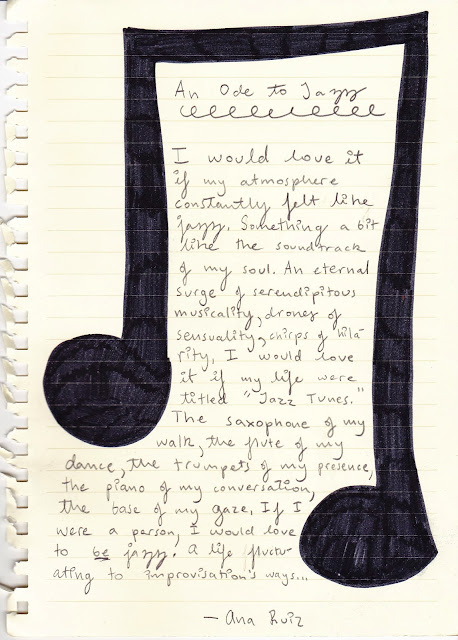 An Ode to Jazz
I would love it
if my atmosphere
constantly felt like
jazz. Something a bit
like the soundtrack
of my soul. An eternal
surge of serendipitous
musicality, drones of
sensuality, chirps of hila-
rity, I would love
it if my life were
titled "Jazz Tunes."
The saxophone of my
walk, the flute of my
dance, the trumpets of my presence,
the piano of my conversation,
the base of my gaze. If I
were a person, I would love
to be jazz. A life fluctu-
ating to improvisation's ways...
- Ana Ruiz